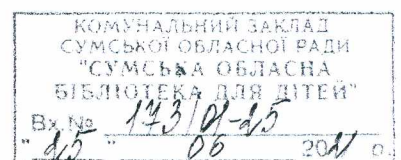 КОМУНАЛЬНИЙ ЗАКЛАД
СУМСЬКОЇ ОБЛАСНОЇ РАДИ
"СУМСЬКА ОБЛАСНА
БІБЛІОТЕКА ДЛЯ ДІТЕЙ"
Вх.№ 173/01-25
"25" 06 2021 р.